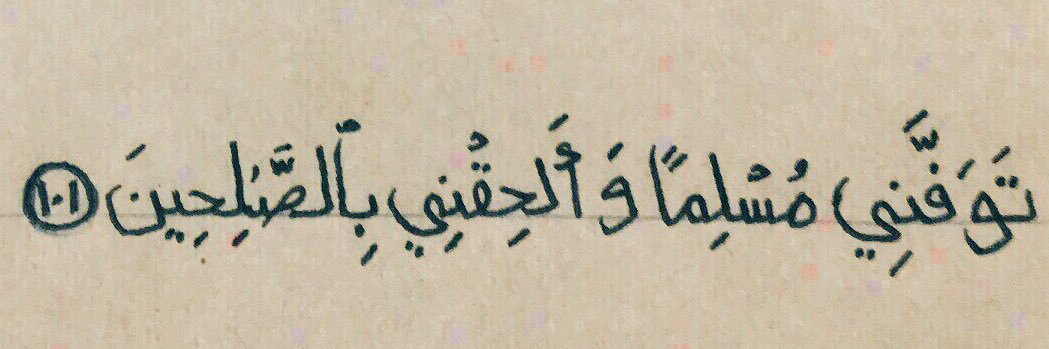 تَوَفَّنِي مُسْلِمًا وَأَلْحِقْنِي بِٱلصَّٰلِحِينَ ١٠١